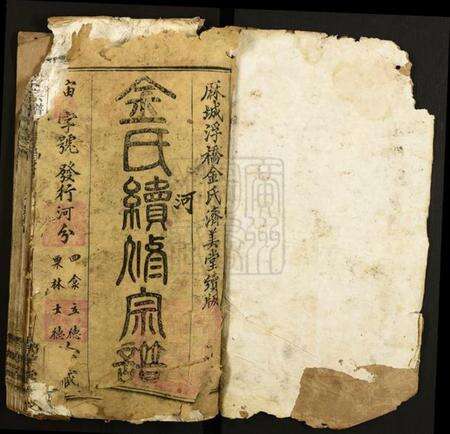 麻城浮橋金氏濟美堂續版
河
金氏續修宗譜
宙字號發行河分
四房立德
栗林士德
藏